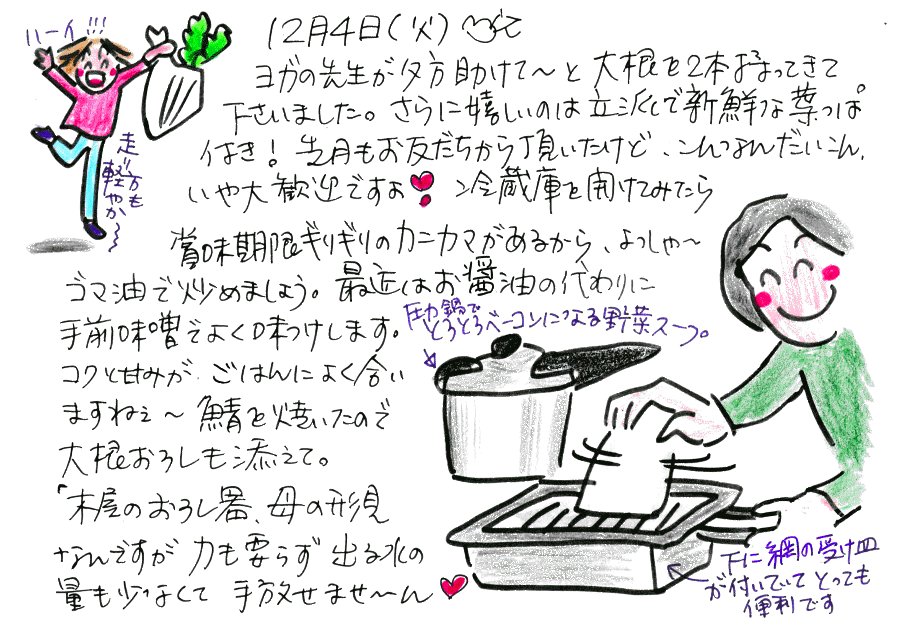 ハーイ!!!
12月4日(火)
ヨガの先生が夕方助けて〜と大根を2本持ってきて
下さいました。さらに嬉しいのは立派で新鮮な葉っぱ
付き!先月もお友だちから頂いたけど、こんなんだいこん、
いや大歓迎ですよ 冷蔵庫を開けてみたら
走り方も
軽やか〜
賞味期限ギリギリのカニカマがあるから、よっしゃ〜
ゴマ油で炒めましょう。最近はお醤油の代わりに
手前味噌でよく味つけします。
圧力鍋で
とろとろベーコンになる野菜スープ。
コクと甘みが、ごはんによく合い
ますねぇ〜 鯖を焼いたので
大根おろしも添えて。
「木屋のおろし器、母の形見
なんですが 力も要らず 出る水の
量も少なくて 手放せませ〜ん
下に網の受け皿
が付いていて とっても
便利です